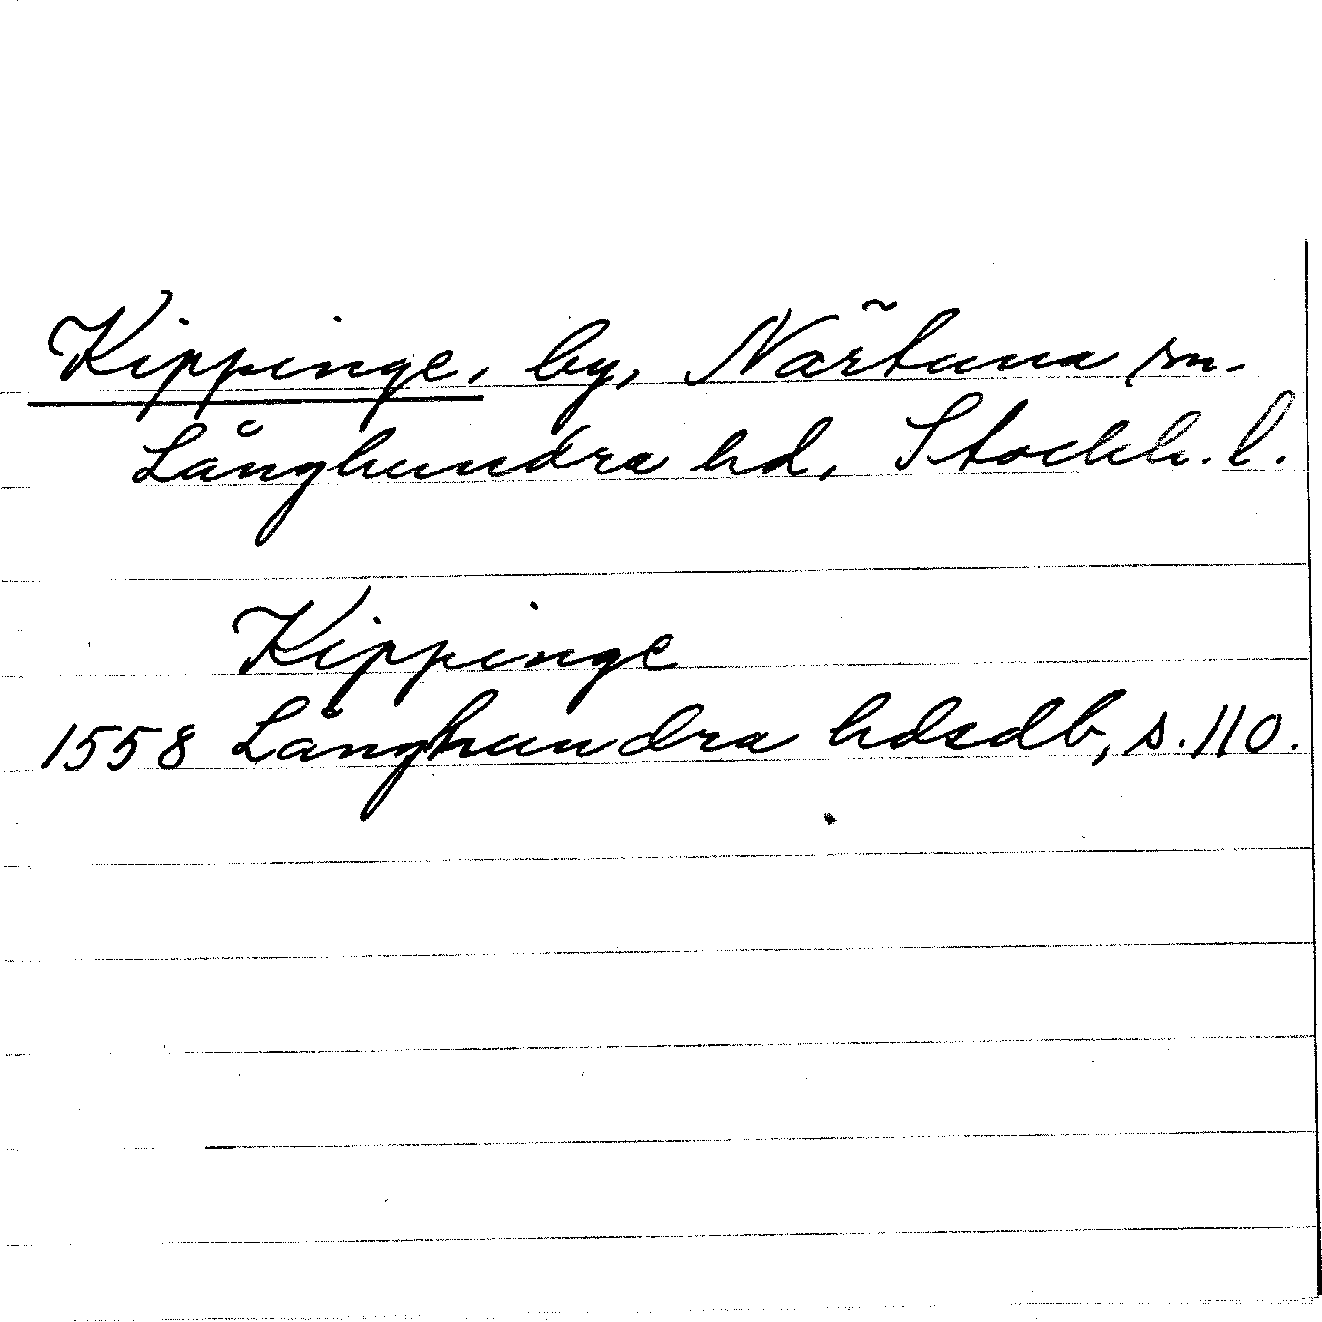 Kippinge, by, Närtuna sn.
Långhundra hd, Stockh. l.
Kippinge
1558 Långhundra hdsdb, s. 110.